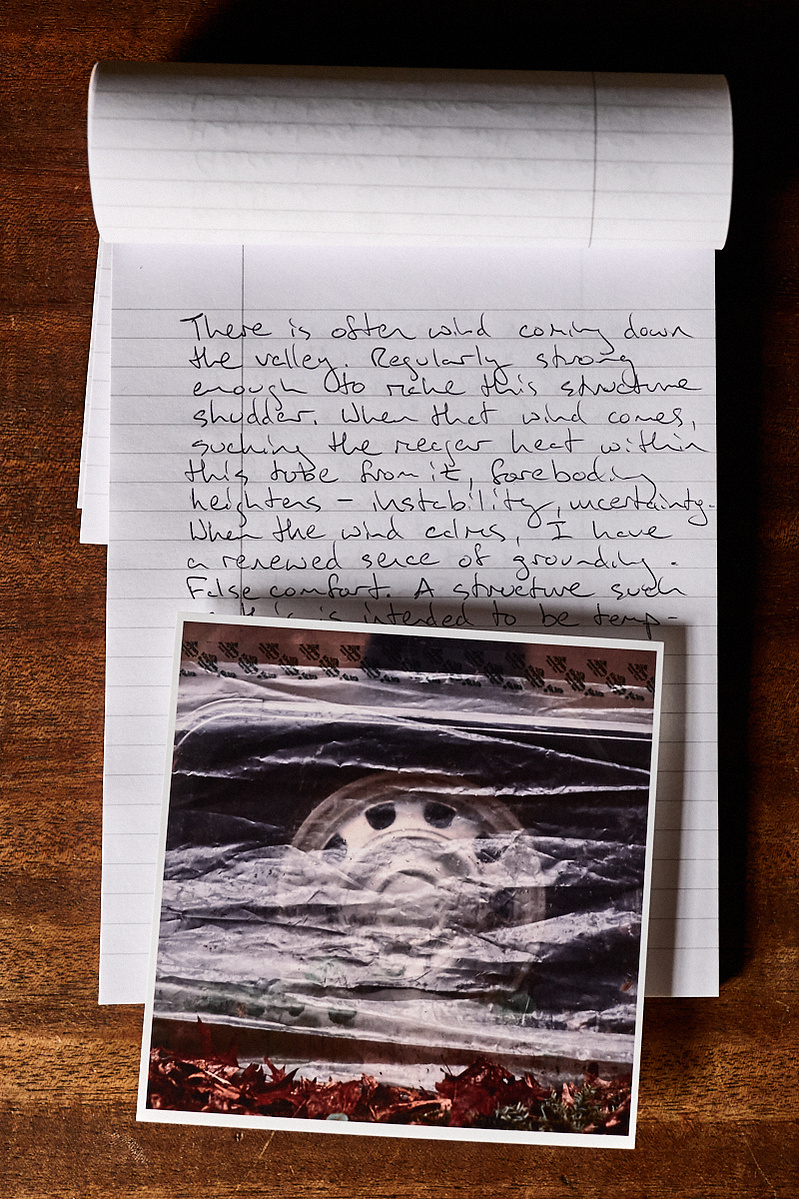 There is often wind coming down
the valley. Regularly strong
enough to make this structure
shudder. When that wind comes,
sucking the meager heat within
this tube from it, foreboding
heightens – instability, uncertainty.
When the wind calms, I have
a renewed sence of grounding.
False comfort. A structure such
is intended to be temp-